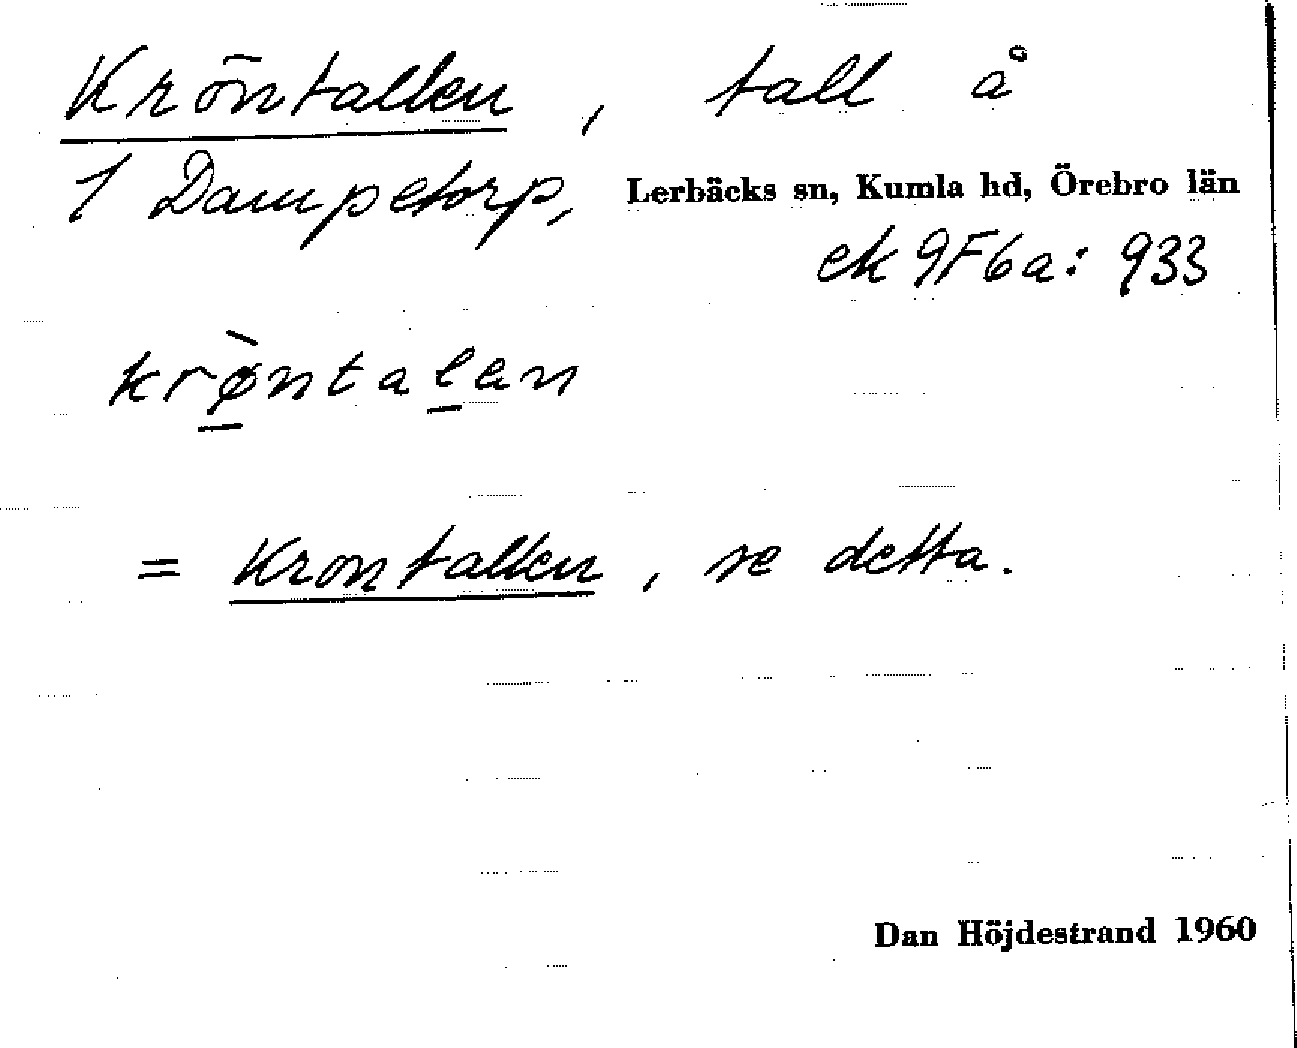 Kröntallen, tall å
1 Dampetorp, Lerbäcks sn, Kumla hd, Örebro län
ek 9F6a: 933
krø̀ntalan
= Krontallen, se detta.
Dan Höjdestrand 1960